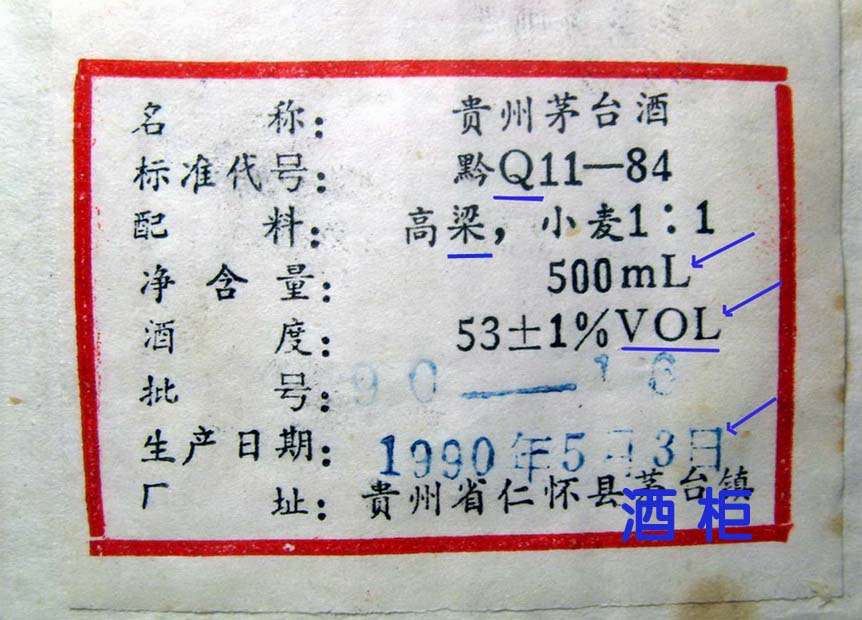 名称：贵州茅台酒
标准代号：黔Q11—84
配料：高梁，小麦1：1
净含量：500mL
酒度：53±1%VOL
批号：90—16
生产日期：1990年5月3日
厂址：贵州省仁怀县茅台镇
酒柜